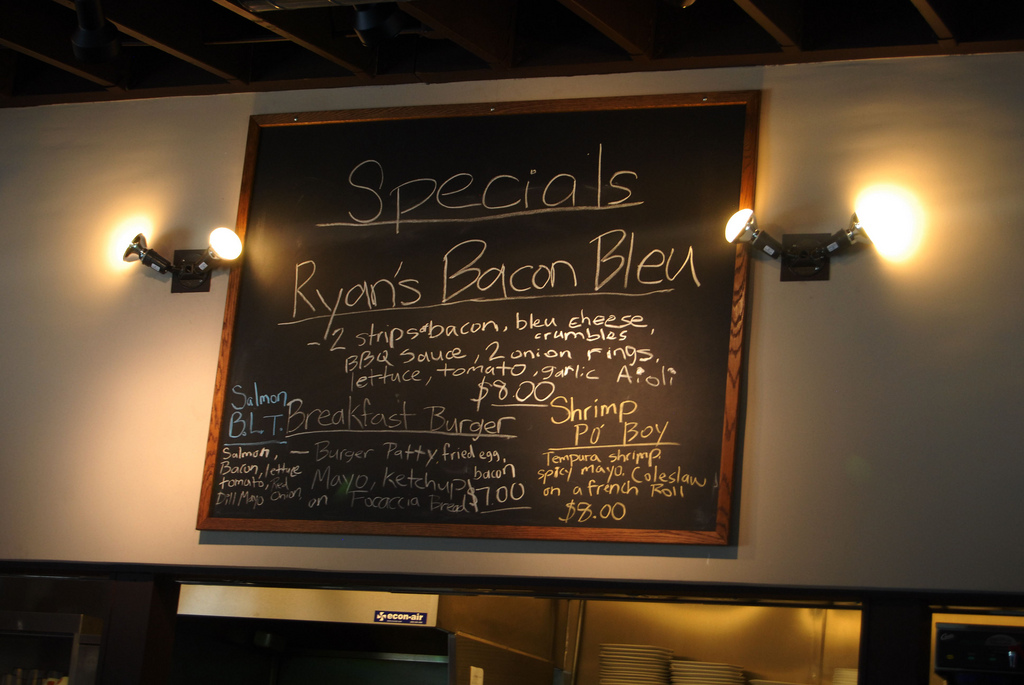 Specials
Ryan's Bacon Bleu
- 2 strips bacon, bleu cheese,
crumbles
BBQ sauce, 2 onion rings,
lettuce, tomato, garlic Aioli
$8.00
Salmon
B.L.T.
Salmon,
Bacon, lettuce
tomato, Red
Dill Mayo Onion
Breakfast Burger
- Burger Patty, fried egg,
bacon
Mayo, ketchup
on Focaccia Bread
$7.00
Shrimp
Po' Boy
Tempura shrimp,
spicy mayo, Coleslaw
on a french Roll
$8.00
econ-air